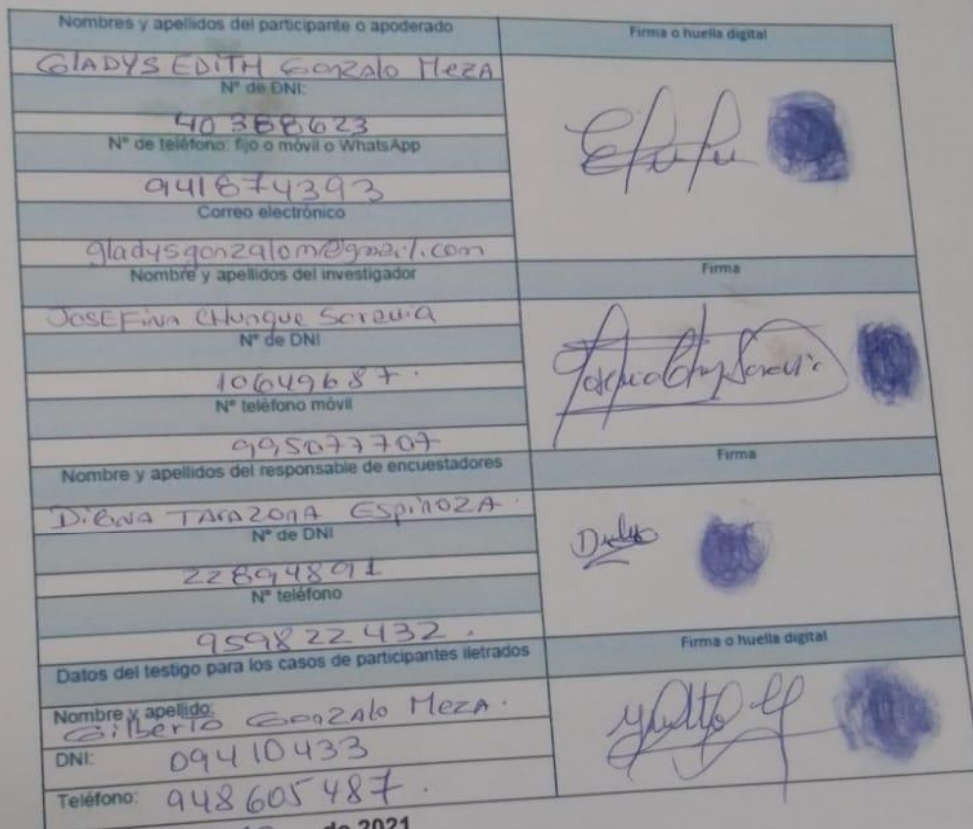 Nombres y apellidos del participante o apoderado
Firma o huella digital
GlADYS EDITH Gonzalo MezA
N° de DNI:
40388623
N° de teléfono: fijo o móvil o WhatsApp
941874393
Correo electrónico
gladysgonzalom@gmail.com
Nombre y apellidos del investigador
Firma
JOSEFina CHunque Saravia
N° de DNI
10649687.
N° teléfono móvil
995077707
Nombre y apellidos del responsable de encuestadores
Firma
TArAZOnA EspinoZA.
N° de DNI
22894891
N° teléfono
959822432.
Datos del testigo para los casos de participantes iletrados
Firma o huella digital
Nombre y apellido:
Gilberto GonzAlo MezA.
DNI: 09410433
Teléfono: 948605487.
de 2021